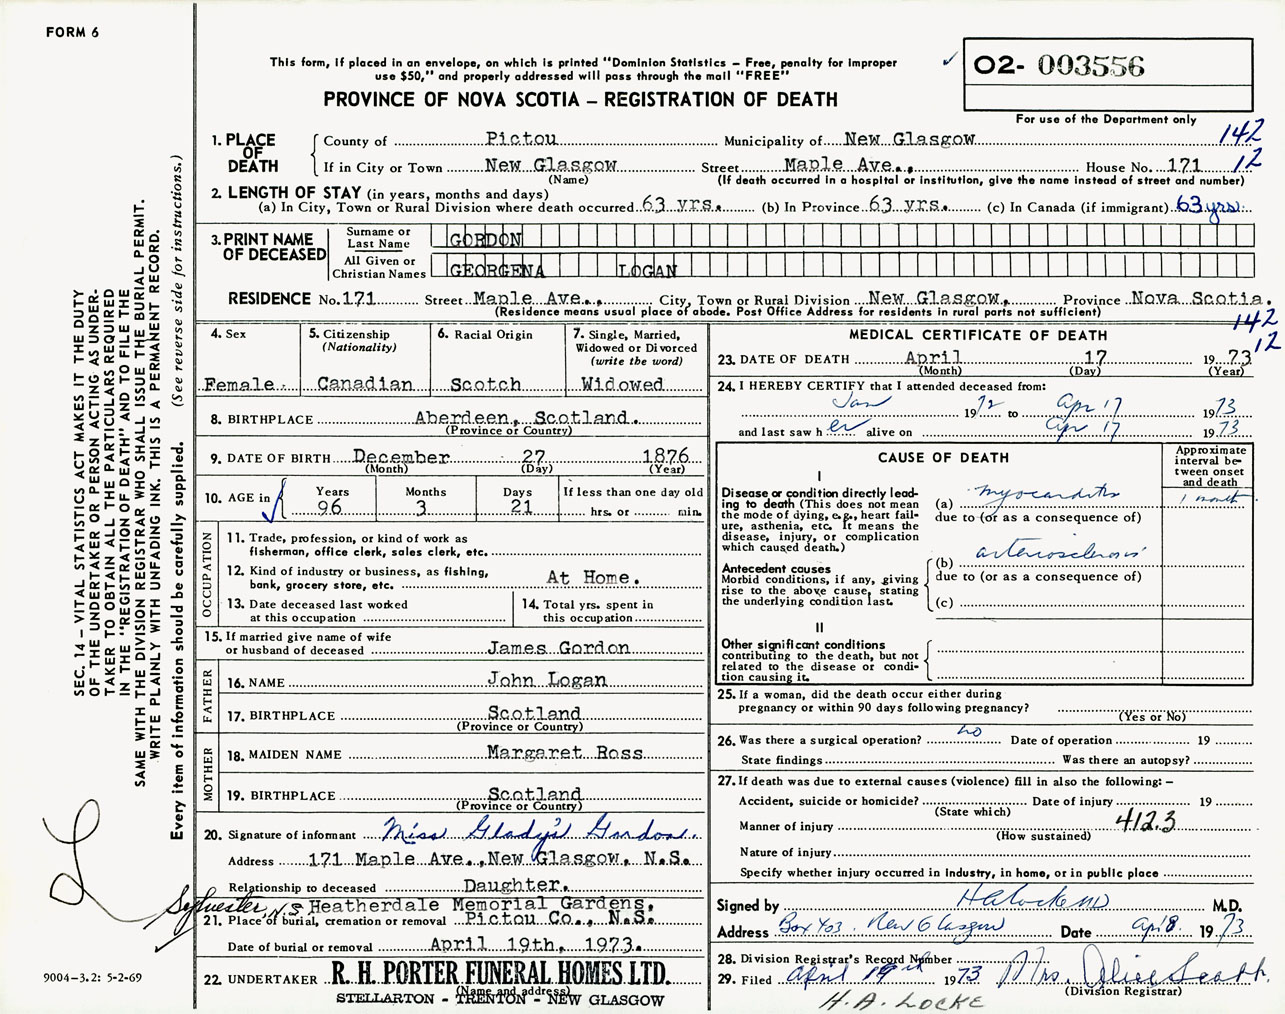 FORM 6
This form, if placed in an envelope, on which is printed "Dominion Statistics – Free, penalty for improper
use $50," and properly addressed will pass through the mail "FREE"
✓ O2- 003556
PROVINCE OF NOVA SCOTIA – REGISTRATION OF DEATH
For use of the Department only
1. PLACE OF DEATH
County of Pictou Municipality of New Glasgow 142
If in City or Town New Glasgow Street Maple Ave., House No. 171 12
(Name) (If death occurred in a hospital or institution, give the name instead of street and number)
2. LENGTH OF STAY (in years, months and days)
(a) In City, Town or Rural Division where death occurred 63 yrs. (b) In Province 63 yrs. (c) In Canada (if immigrant) 63 yrs.
3. PRINT NAME OF DECEASED
Surname or Last Name GORDON
All Given or Christian Names GEORGENA LOGAN
RESIDENCE No. 171 Street Maple Ave., City, Town or Rural Division New Glasgow, Province Nova Scotia.
(Residence means usual place of abode. Post Office Address for residents in rural parts not sufficient)
142
12
4. Sex
Female.
5. Citizenship
(Nationality)
Canadian
6. Racial Origin
Scotch
7. Single, Married,
Widowed or Divorced
(write the word)
Widowed
8. BIRTHPLACE Aberdeen, Scotland.
(Province or Country)
9. DATE OF BIRTH December 27 1876
(Month) (Day) (Year)
10. AGE in
Years Months Days If less than one day old
96 3 21 hrs. or min.
OCCUPATION
11. Trade, profession, or kind of work as
fisherman, office clerk, sales clerk, etc.
12. Kind of industry or business, as fishing,
bank, grocery store, etc. At Home.
13. Date deceased last worked
at this occupation
14. Total yrs. spent in
this occupation
15. If married give name of wife
or husband of deceased James Gordon
FATHER
16. NAME John Logan
17. BIRTHPLACE Scotland
(Province or Country)
MOTHER
18. MAIDEN NAME Margaret Ross
19. BIRTHPLACE Scotland
(Province or Country)
20. Signature of informant Miss Glady's Gordon.
Address 171 Maple Ave., New Glasgow, N.S.
Relationship to deceased Daughter.
Sylvester, N S Heatherdale Memorial Gardens,
21. Place of burial, cremation or removal Pictou Co., N.S.
Date of burial or removal April 19th, 1973.
22. UNDERTAKER R. H. PORTER FUNERAL HOMES LTD.
(Name and address)
STELLARTON - TRENTON - NEW GLASGOW
MEDICAL CERTIFICATE OF DEATH
23. DATE OF DEATH April 17 1973
(Month) (Day) (Year)
24. I HEREBY CERTIFY that I attended deceased from:
Jan 1972 to Apr 17 1973
and last saw her alive on Apr 17 1973
CAUSE OF DEATH
Approximate
interval be-
tween onset
and death
I
Disease or condition directly lead-
ing to death (This does not mean
the mode of dying, e.g., heart fail-
ure, asthenia, etc. It means the
disease, injury, or complication
which caused death.)
(a) myocarditis 1 month
due to (or as a consequence of)
Antecedent causes
Morbid conditions, if any, giving
rise to the above cause, stating
the underlying condition last.
(b) arteriosclerosis
due to (or as a consequence of)
(c)
II
Other significant conditions
contributing to the death, but not
related to the disease or condi-
tion causing it.
25. If a woman, did the death occur either during
pregnancy or within 90 days following pregnancy?
(Yes or No)
26. Was there a surgical operation? no Date of operation 19
State findings Was there an autopsy?
27. If death was due to external causes (violence) fill in also the following: –
Accident, suicide or homicide? Date of injury 19
(State which)
Manner of injury 412.3
(How sustained)
Nature of injury
Specify whether injury occurred in industry, in home, or in public place
Signed by H A Locke MD M.D.
Address Box 403. New Glasgow Date Apr 8. 1973
28. Division Registrar's Record Number
29. Filed April 19th 1973 Mrs. Alice Scott.
(Division Registrar)
H. A. LOCKE
SEC. 14 – VITAL STATISTICS ACT MAKES IT THE DUTY
OF THE UNDERTAKER OR PERSON ACTING AS UNDER-
TAKER TO OBTAIN ALL THE PARTICULARS REQUIRED
IN THE "REGISTRATION OF DEATH" AND TO FILE THE
SAME WITH THE DIVISION REGISTRAR WHO SHALL ISSUE THE BURIAL PERMIT.
WRITE PLAINLY WITH UNFADING INK. THIS IS A PERMANENT RECORD.
Every item of information should be carefully supplied. (See reverse side for instructions.)
9004-3.2: 5-2-69